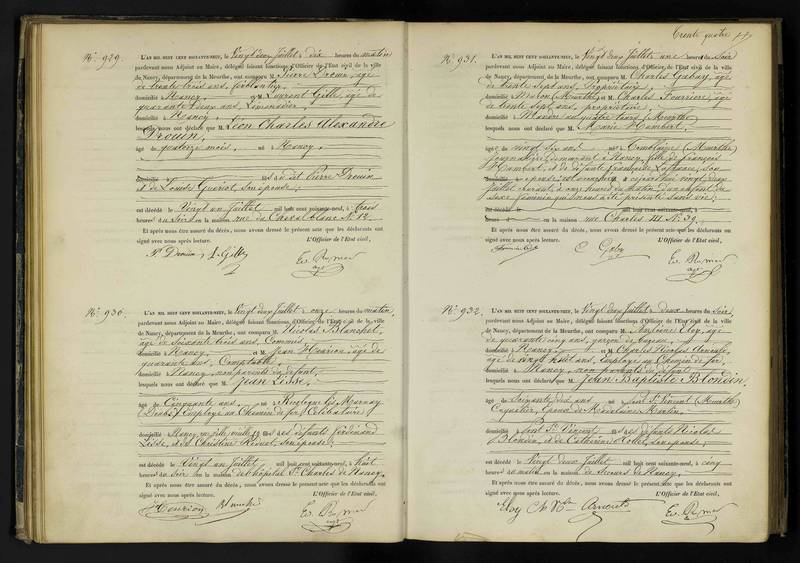 N°. 929.
L'AN MIL HUIT CENT SOIXANTE-NEUF, le Vingt deux Juillet à dix heures du matin
pardevant nous Adjoint au Maire, délégué faisant fonctions d'Officier de l'Etat civil de la ville
de Nancy, département de la Meurthe, ont comparu M. Pierre Drouin, âgé
de trente trois ans, ferblantier,
domicilié à Nancy, et M. Laurent Gille, âgé de
quarante deux ans, Limonadier,
domicilié à Nancy,
lesquels nous ont déclaré que M. Léon Charles Alexandre
Drouin,
âgé de quatorze mois, né à Nancy,
domicilié fils de dit Pierre Drouin
et de Louise Gueriot, son épouse,
est décédé le Vingt un Juillet mil huit cent soixante-neuf, à trois
heures du Soir en la maison rue du Cheval blanc N° 12
Et après nous être assuré du décès, nous avons dressé le présent acte que les déclarants ont
signé avec nous après lecture. L'Officier de l'Etat civil,
P. Drouin L. Gille
N°. 930.
L'AN MIL HUIT CENT SOIXANTE-NEUF, le Vingt deux Juillet à onze heures du matin,
pardevant nous Adjoint au Maire, délégué faisant fonctions d'Officier de l'Etat civil de la ville
de Nancy, département de la Meurthe, ont comparu M. Nicolas Blanchet,
âgé de Soixante trois ans, Commis
domicilié à Nancy, et M. Jean Hourion, âgé de
quarante ans, Comptable,
domicilié à Nancy, non parents du défunt,
lesquels nous ont déclaré que M. Jean Lisse,
âgé de Cinquante ans, né à
(Doubs) Employé au Chemin de fer, Célibataire
domicilié à Nancy, en ville, fils des défunts Ferdinand
Lisse, et de Christine son épouse,
est décédé le Vingt un Juillet mil huit cent soixante-neuf, à huit
heures du Soir en la maison de l'hôpital St. Charles de Nancy.
Et après nous être assuré du décès, nous avons dressé le présent acte que les déclarants ont
signé avec nous après lecture. L'Officier de l'Etat civil,
Hourion
Trente quatre
N°. 931.
L'AN MIL HUIT CENT SOIXANTE-NEUF, le Vingt deux Juillet à une heure du Soir
pardevant nous Adjoint au Maire, délégué faisant fonctions d'Officier de l'Etat civil de la ville
de Nancy, département de la Meurthe, ont comparu M. Charles
de trente Sept ans, Propriétaire,
domicilié à (Meurthe) et M. Charles Fourrière, âgé
de trente Sept ans, propriétaire,
domicilié à (Meurthe)
lesquels nous ont déclaré que M. Marie Humbert,
âgée de vingt six ans née à (Meurthe)
journalière demeurant à Nancy, fille de François
Humbert, et de défunte Françoise son
épouse, est accouchée aujourd'hui vingt deux
Juillet courant à onze heures du matin, d'un enfant du
Sexe féminin qui nous a été présenté sans vie,
mil huit cent soixante-neuf, à
heures en la maison rue Charles III N° 39.
Et après nous être assuré du décès, nous avons dressé le présent acte que les déclarants ont
signé avec nous après lecture. L'Officier de l'Etat civil,
N°. 932.
L'AN MIL HUIT CENT SOIXANTE-NEUF, le Vingt deux Juillet à deux heures du Soir,
pardevant nous Adjoint au Maire, délégué faisant fonctions d'Officier de l'Etat civil de la ville
de Nancy, département de la Meurthe, ont comparu M. Eloy, âgé
de quarante cinq ans, garçon de bureau,
domicilié à Nancy, et M. Charles Nicolas Arnould,
âgé de vingt ans, Employé au Chemin de fer,
domicilié à Nancy, non parents du défunt
lesquels nous ont déclaré que M. Jean Baptiste Blondin,
âgé de Soixante dix ans né à Pont St. Vincent (Meurthe)
Coquetier, époux de Madelaine Martin,
domicilié à Pont St. Vincent fils des défunts Nicolas
Blondin, et de Catherine son épouse,
est décédé le Vingt deux Juillet mil huit cent soixante-neuf, à cinq
heures du matin en la maison de Secours de Nancy.
Et après nous être assuré du décès, nous avons dressé le présent acte que les déclarants ont
signé avec nous après lecture. L'Officier de l'Etat civil,
Eloy Ch Nas Arnould